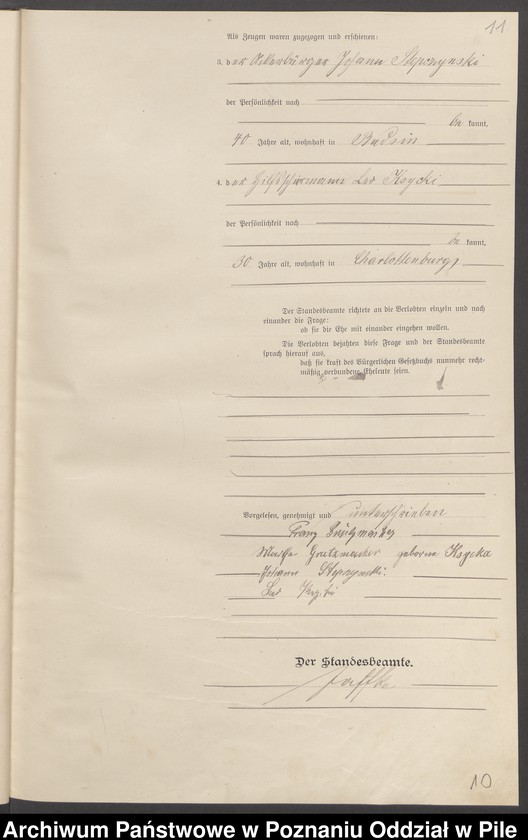 11
Als Zeugen waren zugezogen und erschienen:
3. der Ackerbürger Johann Stepczynski
der Persönlichkeit nach
be kannt,
40 Jahre alt, wohnhaft in Budsin
4. der Leo Ksycki
der Persönlichkeit nach
be kannt,
30 Jahre alt, wohnhaft in Charlottenburg,
Der Standesbeamte richtete an die Verlobten einzeln und nach
einander die Frage:
ob sie die Ehe mit einander eingehen wollen.
Die Verlobten bejahten diese Frage und der Standesbeamte
sprach hierauf aus,
daß sie kraft des Bürgerlichen Gesetzbuchs nunmehr recht-
mäßig verbundene Eheleute seien.
Vorgelesen, genehmigt und unterschrieben
Franz Grützmacher
Grutzmacher geborne Ksycka
Johann Stepczynski.
Leo Ksycki
Der Standesbeamte.
Jaffke
10
Archiwum Państwowe w Poznaniu Oddział w Pile